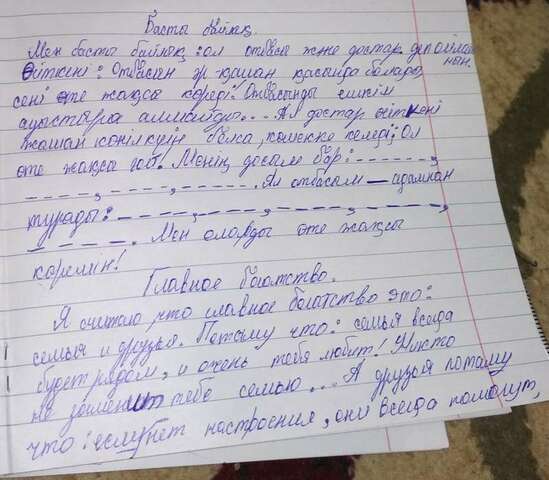 Басты байлық.
Мен басты байлық : ол отбасы және достар деп ойлай
мын.
Өйткені : Отбасың әр қашан қасыңда болады,
сені өте жақсы көреді! Отбасыңды ешкім
ауыстыра алмайды... Ал достар өйткені
жаман көңіл күйің болса, көмекке келеді; Ол
өте жақсы ғой. Менің досым бар : – – – – – –,
– – – – –, – – – – –, – – – – –. Ал отбасым – адамнан
тұрады : – – – –, – – – –, – – – –, – – – –, – – – –,
– – – – –. Мен оларды өте жақсы
көремін!
Главное богатство.
Я считаю, что главное богатство это:
семья и друзья. Потому что: семья всегда
будет рядом, и очень тебя любит! Никто
не заменит тебе семью... А друзья потому
что : если нет настроения, они всегда помогут,